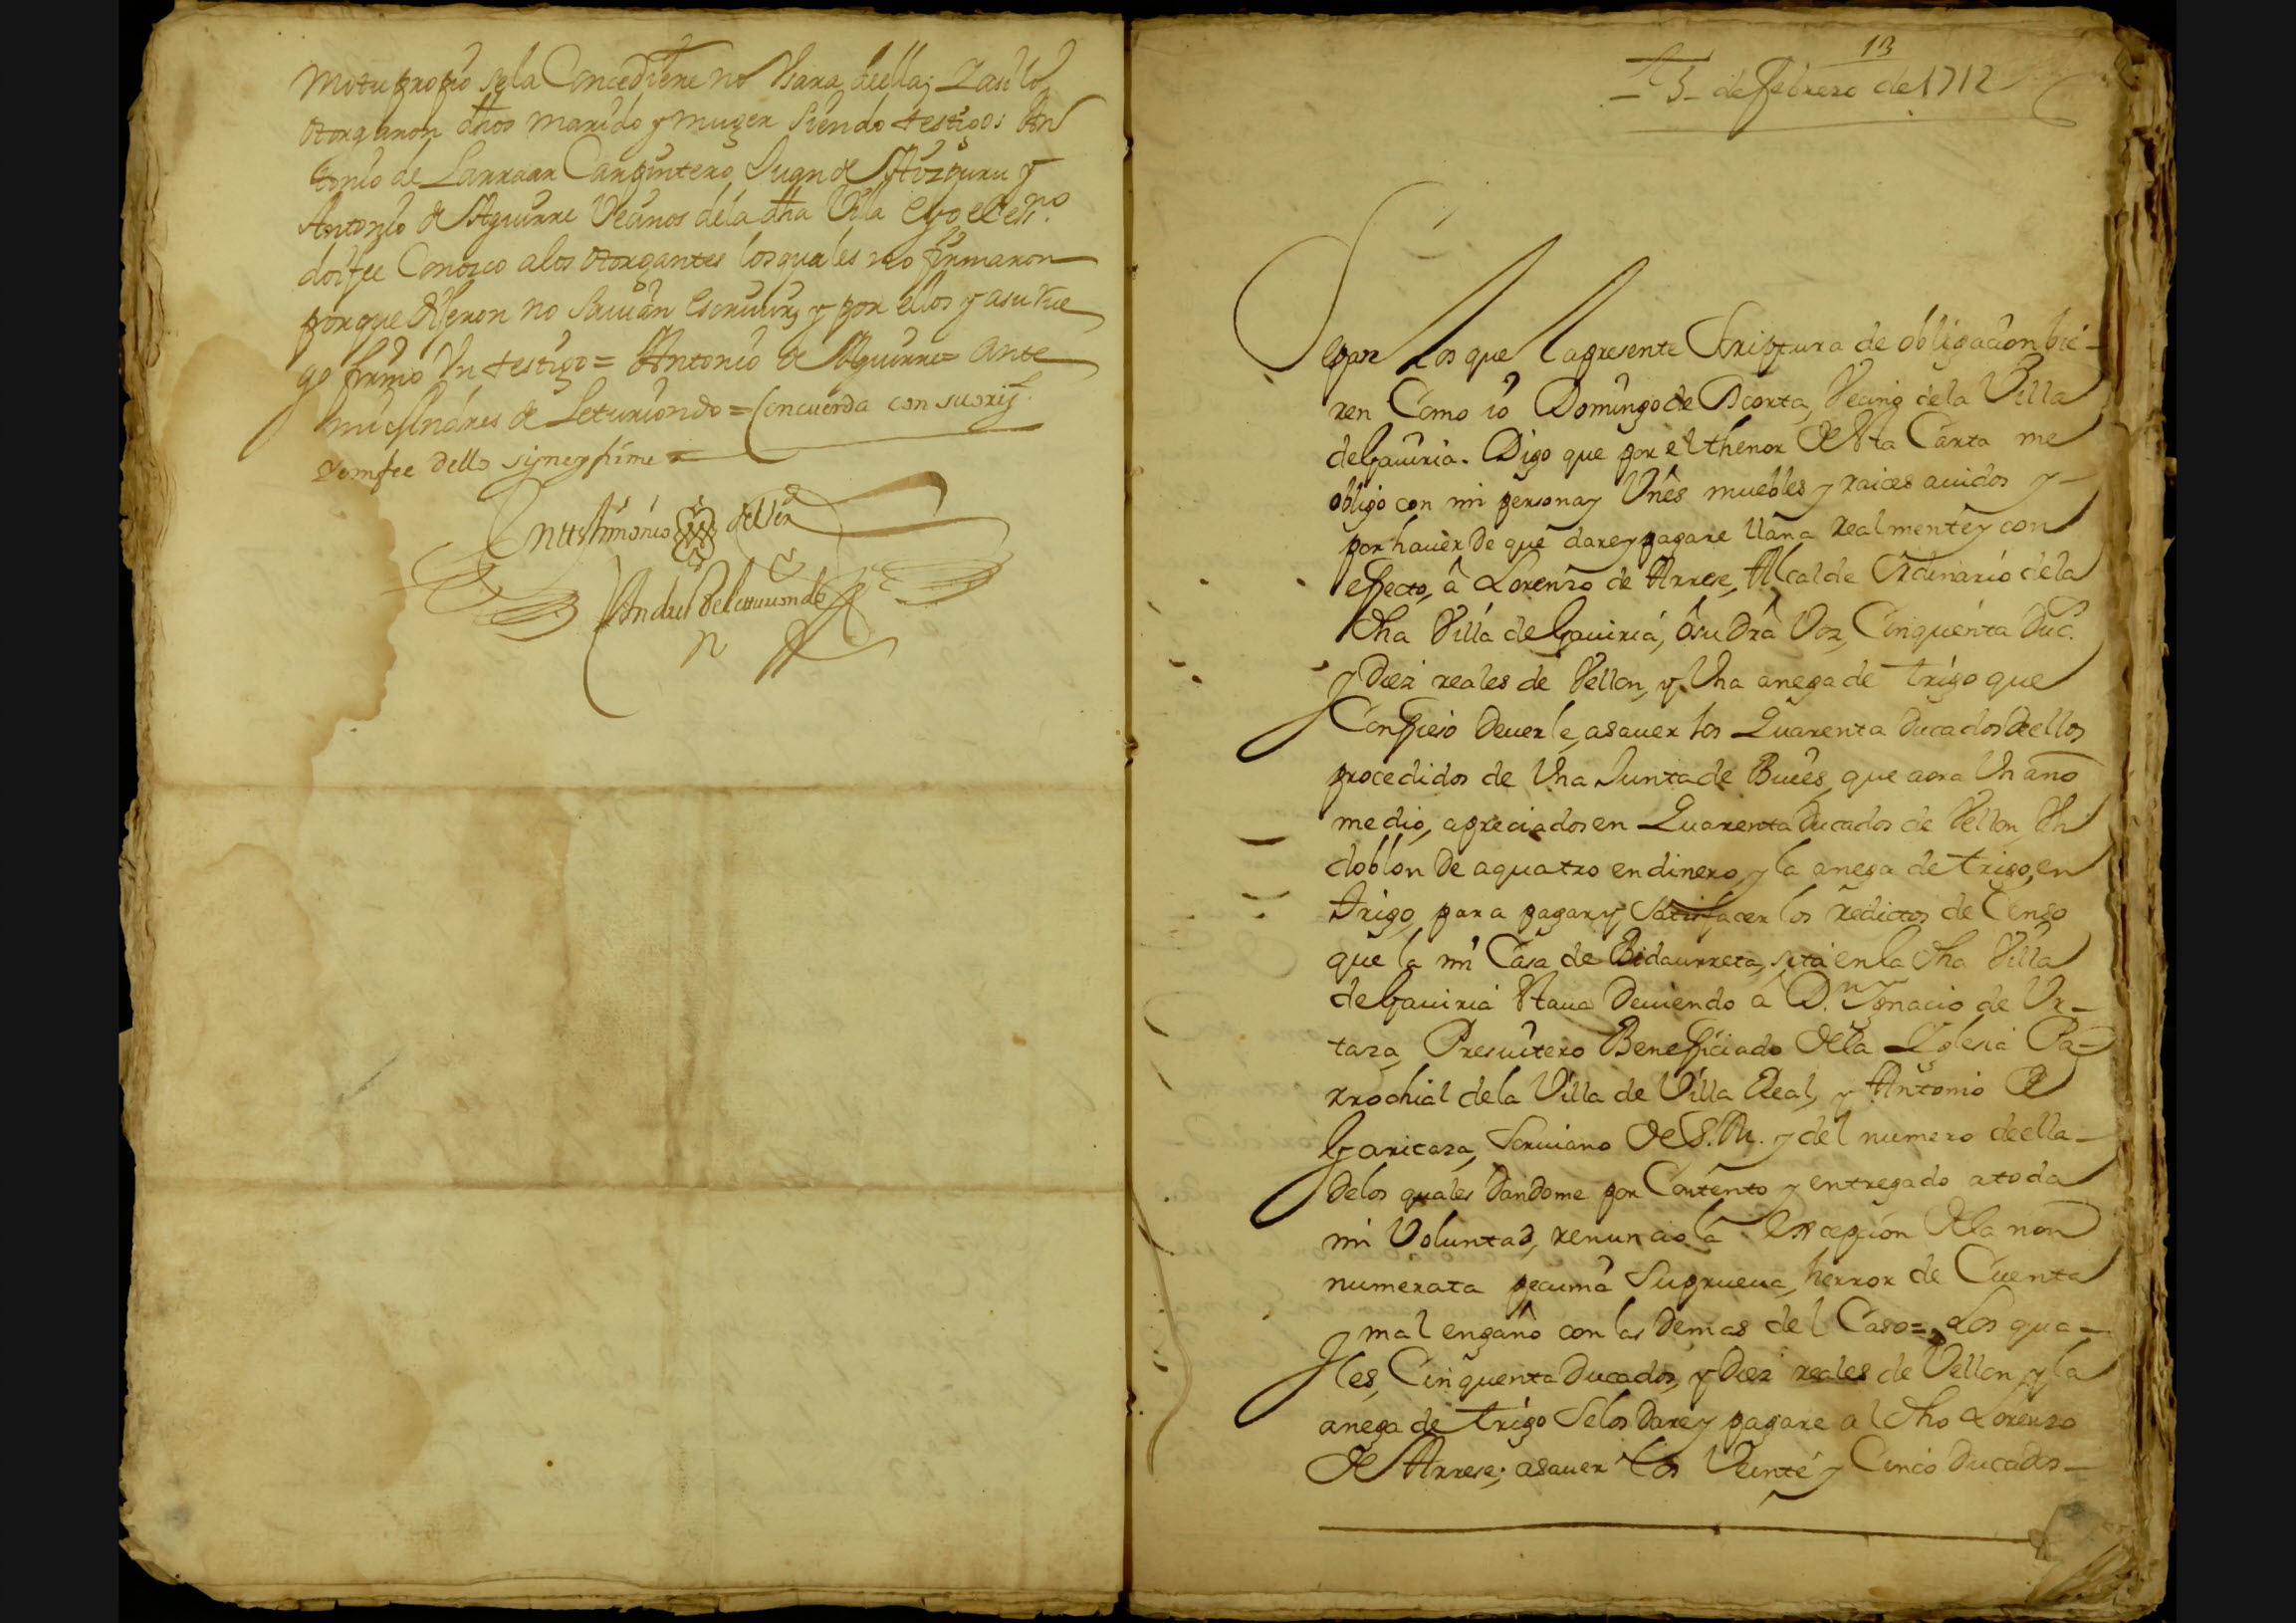 Motu propio se la Concediere no Usara de ella; y asi lo
otorgaron dhos marido y muger siendo testigos An
tonio de Larraar Carpintero, Juan de Aizpuru y
Antonio de Aguirre Vecinos de la dha Villa e yo el ess.no
doi fee Conozco a los otorgantes los quales no firmaron
porque dijeron no savian escrivir, y por ellos y a su rue
go firmo Un testigo = Antonio de Aguirre = Ante
mi Andres de Leturiondo = Concuerda con su orij.l
y en fee dello signe y firme =
En testimonio de Ver
Andres de Leturiondo
13
5 de febrero de 1712
Sepan Los que la presente Scriptura de obligacion bie-
ren Como io Domingo de Acorta, Vecino de la Villa
de Gaviria. Digo que por el thenor de esta Carta me
obligo con mi persona y Vnês muebles y raices avidos y
por haver de que dare y pagare llana Realmente y con
effecto, â Lorenzo de Arrese, Alcalde Ordinario de la
dha Villa de Gaviria, ô su dra Voz, Cinquenta Duc.s
y Diez reales de Vellon, y Vna anega de trigo que
Confiesso deverle, asaver los Quarenta ducados de ellos
procedidos de Vna Junta de Bueies, que aora Vn año
medio, apreciados en Quarenta Ducados de Vellon, Vn
doblon de a quatro en dinero, y la anega de trigo, en
trigo, para pagar y Satisfacer los redictos de Censo
que la mi Casa de Bidaurreta, sita en la dha Villa
de Gaviria estava deviendo â D.n Ygnacio de Vr-
taza, Presvitero Beneficiado de la Yglesia Pa-
rrochial de la Villa de Villa Real, y Antonio de
Garicaza, Scriviano de S.M. y del numero de ella-
de los quales dandome por Contento y entregado a toda
mi Voluntad, renuncio la excepcion de la non
numerata pecunia Su prueva, herror de Cuenta
y mal engaño con las demas del Caso = Los qua-
les, Cinquenta Ducados, y Diez reales de Vellon, y la
anega de trigo Se los dare y pagare al dho Lorenzo
de Arrese; asaver los Veinte y Cinco Ducados-